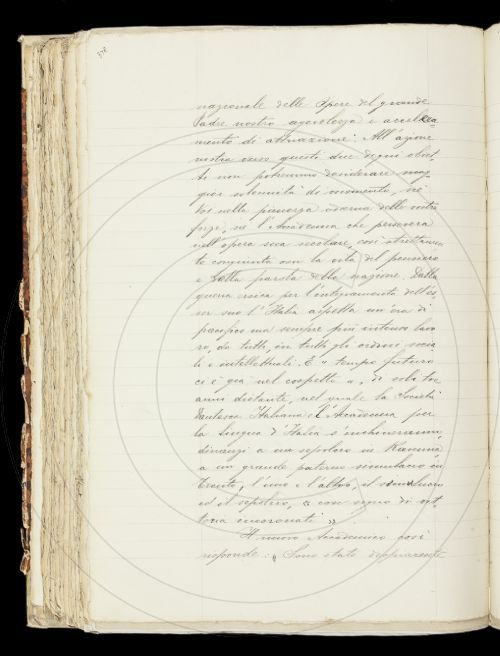 378
nazionale delle Opere del grande
Padre nostro agevolezza e accelera-
mento di attuazione. All'azione
nostra verso questi due degni obiet-
ti non potremmo desiderare mag-
gior solennità di momento, nè
Voi nella pienezza odierna delle vostre
forze, nè l'Accademia che persevera
nell'opera sua secolare, così strettamen-
te congiunta con la vita del pensiero
e della parola della nazione. Dalla
guerra eroica per l'integramento dell'es-
ser suo l'Italia aspetta un'era di
pacifico ma sempre più intenso lavo-
ro, da tutti, in tutti gli ordini socia-
li e intellettuali. E "tempo futuro
ci è già nel cospetto", di soli tre
anni distante, nel quale la Società
Dantesca Italiana e l'Accademia per
la lingua d'Italia s'inchineranno,
dinanzi a un sepolcro in Ravenna,
a un grande paterno simulacro in
Trento, l'uno e l'altro, il simulacro
ed il sepolcro, "con segno di vit-
toria incoronati".
Il nuovo Accademico così
risponde: "Sono stato